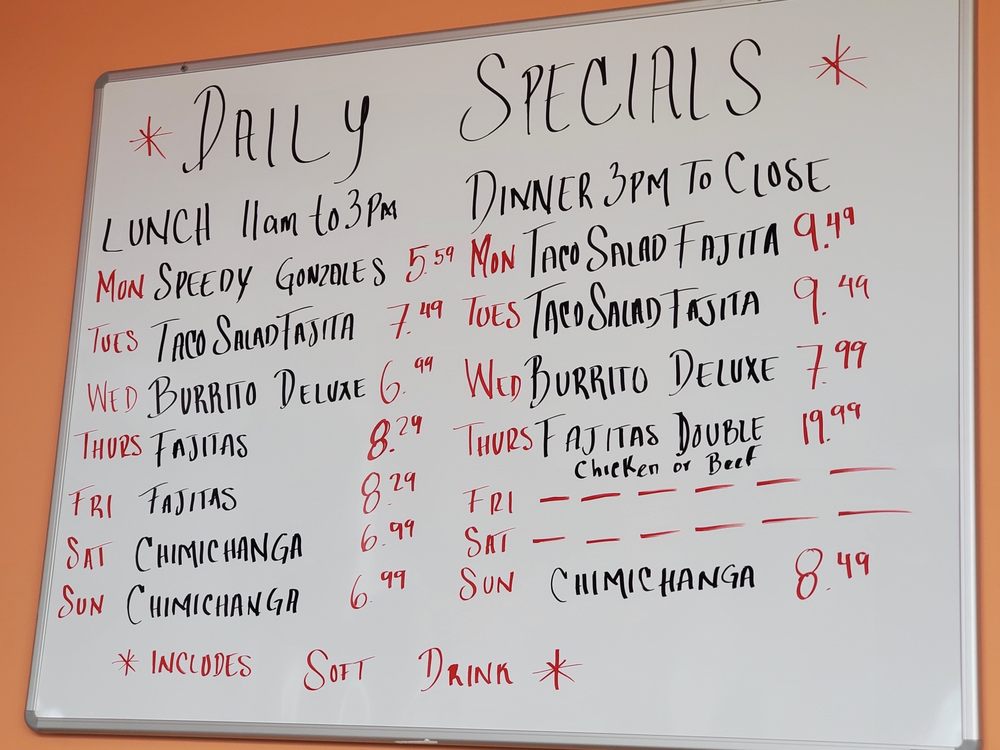 * DAILY SPECIALS *
LUNCH 11am to 3PM
MON SPEEDY GONZALES 5.59
TUES TACO SALAD FAJITA 7.49
WED BURRITO DELUXE 6.99
THURS FAJITAS 8.29
FRI FAJITAS 8.29
SAT CHIMICHANGA 6.99
SUN CHIMICHANGA 6.99
DINNER 3PM TO CLOSE
MON TACO SALAD FAJITA 9.49
TUES TACO SALAD FAJITA 9.49
WED BURRITO DELUXE 7.99
THURS FAJITAS DOUBLE 19.99
Chicken or Beef
FRI — — — — — —
SAT — — — — — —
SUN CHIMICHANGA 8.49
* INCLUDES SOFT DRINK *